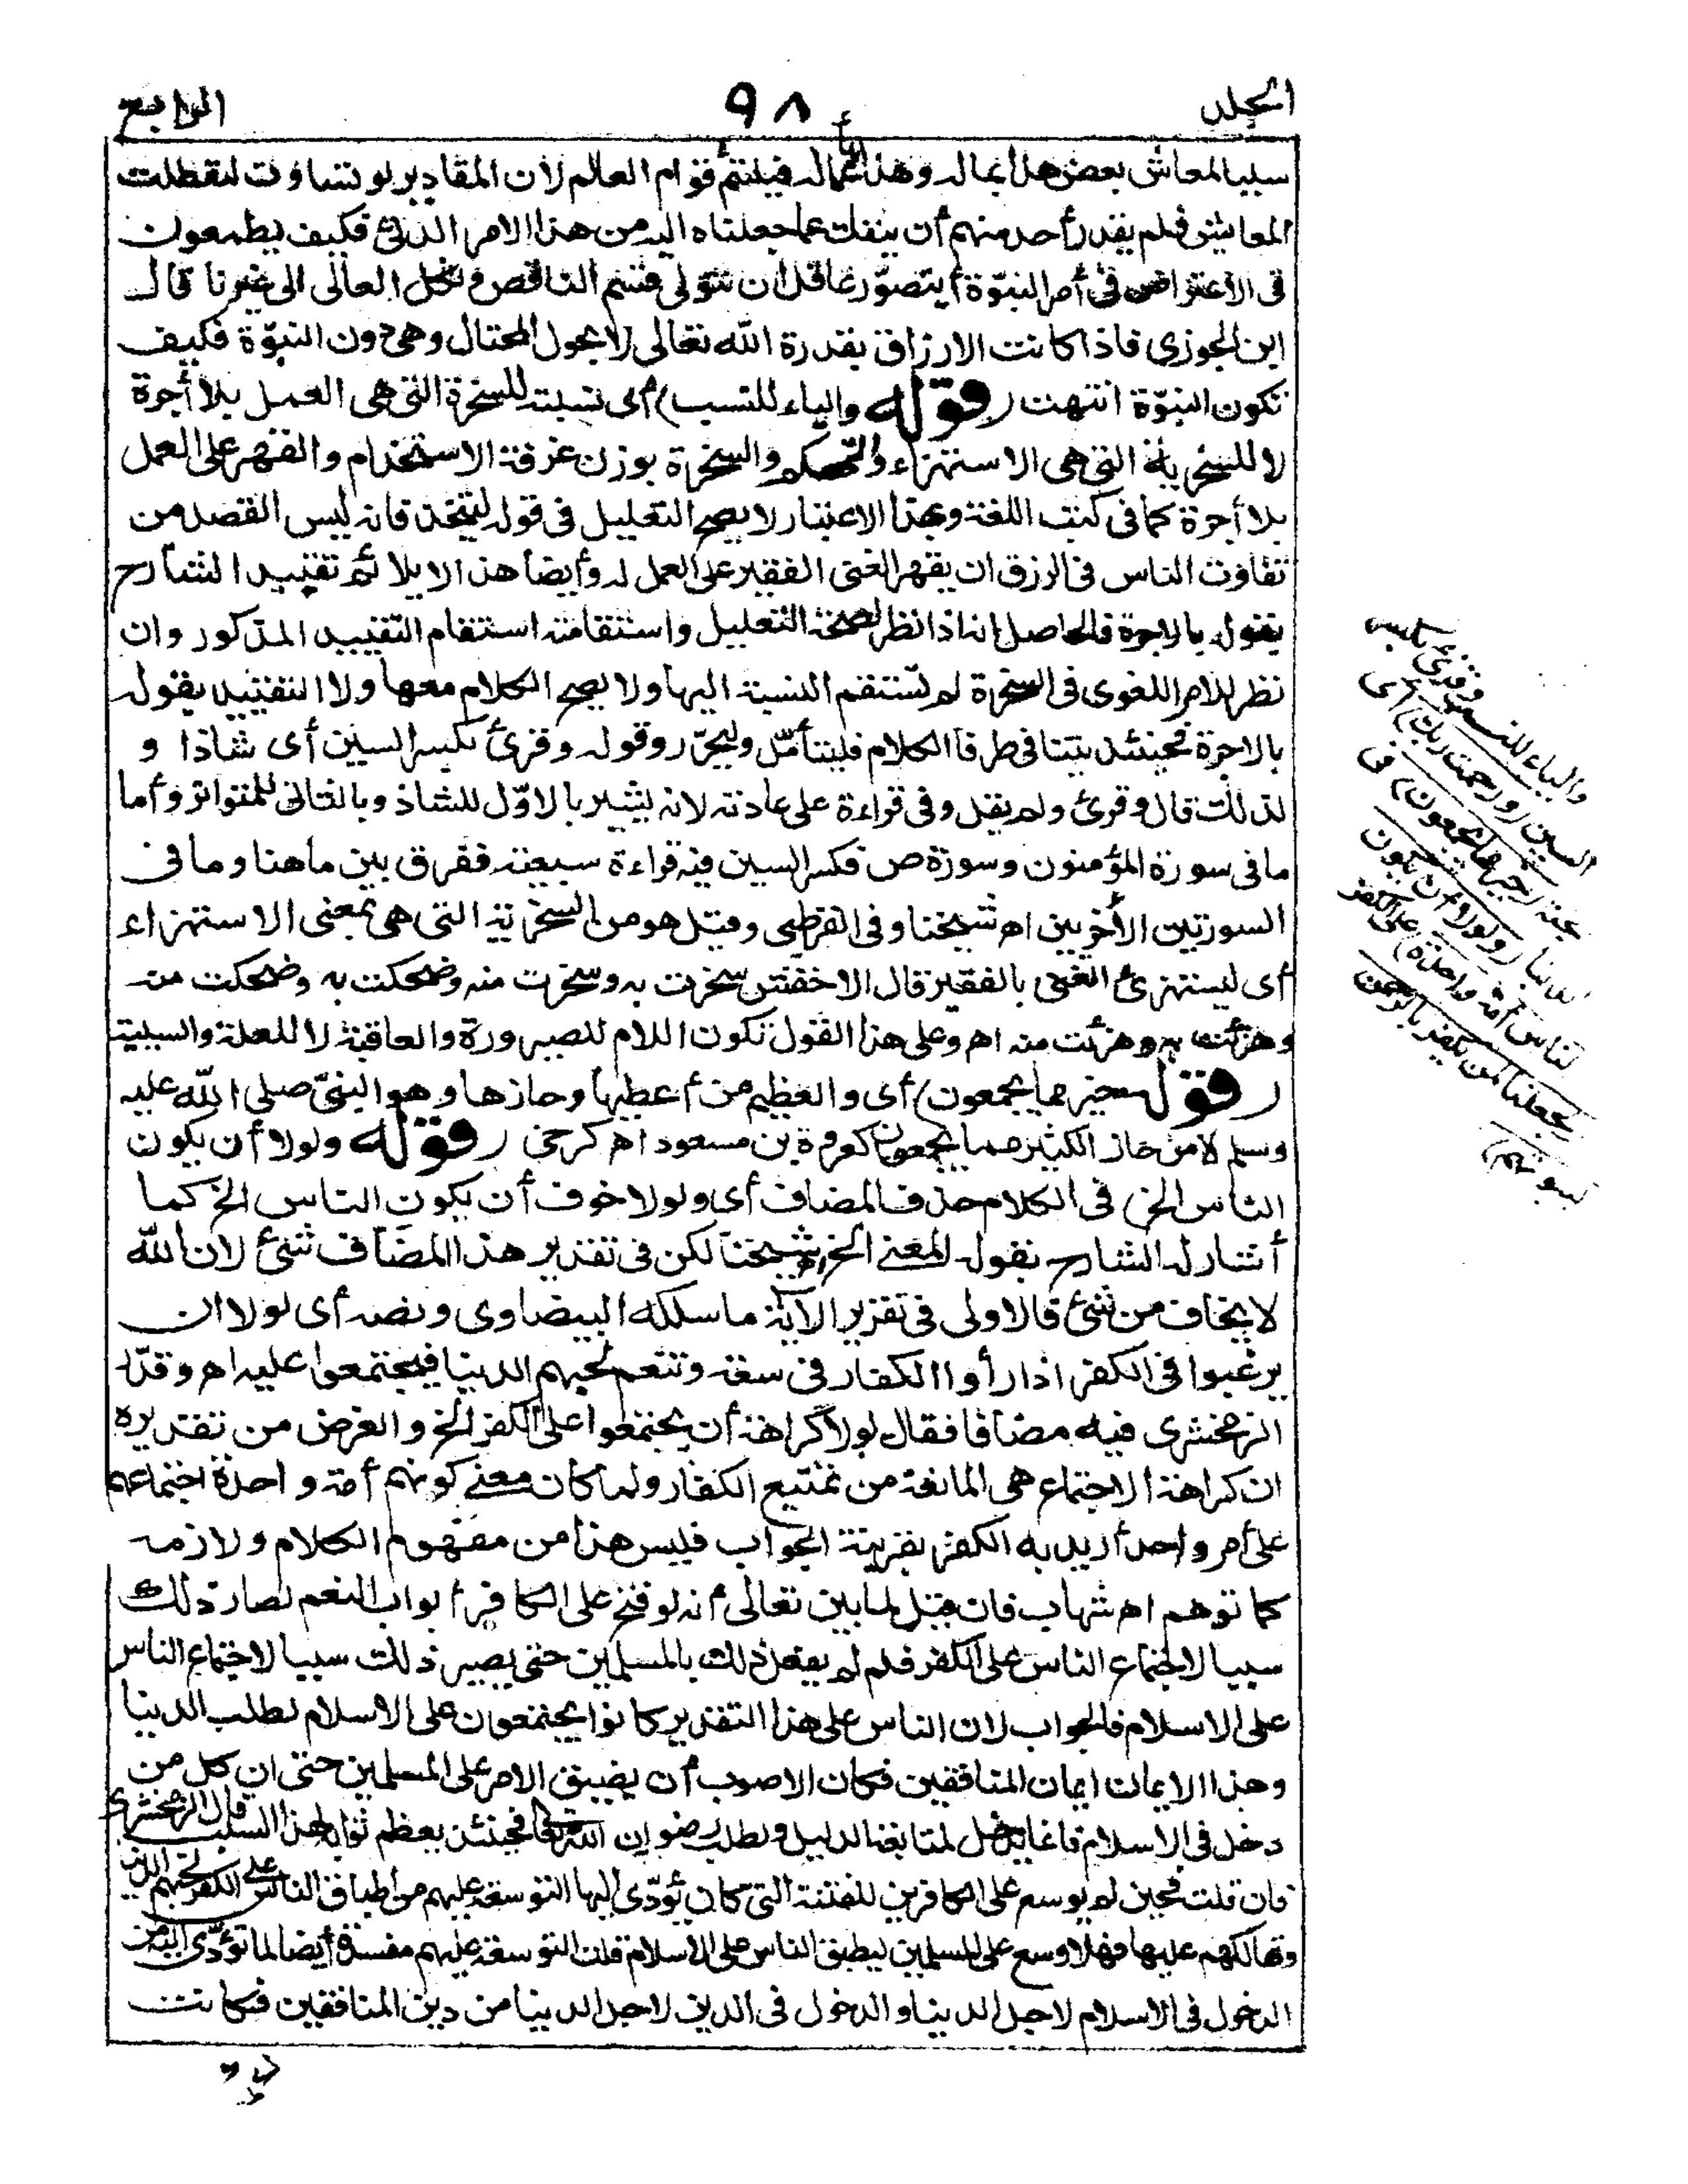 الجلد ٩٨ الرابع
سببا لمعاش بعض هذا بماله وهذا بأعماله فيلتئم قوام العالم لان المقادير لو تساوت لتعطلت
المعايش فلم يقدر أحد منهم أن ينفك عما جعلناه اليه من هذا الامر الدنئ فكيف يطمعون
فى الاعتراض فى أمر النبوّة أيتصوّر عاقل ان نتولى قسم الناقص ونكل العالى الى غيرنا قال
ابن الجوزى فاذا كانت الارزاق بقدرة الله تعالى لا بحول المحتال وهى دون النبوّة فكيف
تكون النبوّة انتهت (قوله والياء للنسب) أى نسبته للسخرة التى هى العمل بلا أجرة
لا للسخرية التى هى الاستهزاء والتهكم والسخرة بوزن غرفة الاستخدام والقهر على العمل
بلا أجرة كما فى كتب اللغة وبهذا الاعتبار لا يصح التعليل فى قوله ليتخذ فانه ليس القصد من
تفاوت الناس فى الرزق ان يقهر الغنى الفقير على العمل له وأيضا هذا لا يلائم تقييد الشارح
بقوله بالاجرة فالحاصل انه اذا نظر لصحة التعليل واستقامته استقام التقييد المذكور وان
نظر للامر اللغوى فى السخرة لم تستقم النسبة اليها ولا يصح الكلام معها ولا التقييد بقوله
بالاجرة فحينئذ يتنافى طرفا الكلام فليتأمّل وليحرّر وقوله وقرئ بكسر السين أى شاذا و
لذلك قال وقرئ ولم يقل وفى قراءة على عادته لانه يشير بالاوّل للشاذ وبالثانى للمتواتر وأما
ما فى سورة المؤمنون وسورة ص فكسر السين فيه قراءة سبعية ففرق بين ما هنا وما فى
السورتين الأخريين اھ شيخنا وفى القرطبى وقيل هو من السخرية التى هى بمعنى الاستهزاء
أى ليستهزئ الغنى بالفقير قال الاخفش سخرت به وسخرت منه وضحكت به وضحكت منه
وهزئت به وهزئت منه اھ وعلى هذا القول تكون اللام للصيرورة والعاقبة لا للعلة والسببية
(قوله خير مما يجمعون) أى والعظيم من أعطيها وحازها وهو النبىّ صلى الله عليه
وسلم لا من حاز الكثير مما يجمعون كعروة بن مسعود اھ كرخى (قوله ولولا أن يكون
الناس الخ) فى الكلام حذف المضاف أى ولولا خوف أن يكون الناس الخ كما
أشار له الشارح بقوله المعنى الخ اھ شيخنا لكن فى تقدير هذا المضاف شئ لان الله
لا يخاف من شئ فالاولى فى تقرير الآية ما سلكه البيضاوى ونصه أى لولا ان
يرغبوا فى الكفر اذا رأوا الكفار فى سعة وتنعم لحبهم الدنيا فيجتمعوا عليه اھ وقدّر
الزمخشرى فيه مضافا فقال لولا كراهة أن يجتمعوا على الكفر الخ والغرض من تقديره
ان كراهة الاجتماع هى المانعة من تمتيع الكفار ولما كان معنى كونهم أمة واحدة اجتماعهم
على أمر واحد أريد به الكفر بقرينة الجواب فليس هذا من مفهوم الكلام ولازمه
كما توهم اھ شهاب فان قيل لما بين تعالى أنه لو فتح على الكافر أبواب النعم لصار ذلك
سببا لاجتماع الناس على الكفر فلم لم يفعل ذلك بالمسلمين حتى يصير ذلك سببا لاجتماع الناس
على الاسلام فالجواب لان الناس على هذا التقدير كانوا يجتمعون على الاسلام لطلب الدنيا
وهذا الايمان ايمان المنافقين فكان الاصوب أن يضيق الامر على المسلمين حتى ان كل من
دخل فى الاسلام فانما يدخل لمتابعة الدليل ولطلب رضوان الله تعالى فحينئذ يعظم ثوابه لهذا السبب قال الزمخشرى
فان قلت فحين لم يوسع على الكافرين للفتنة التى كان يؤدّى اليها التوسعة عليهم من اطباق الناس على الكفر لحبهم الدنيا
وتهالكهم عليها فهلا وسع على المسلمين ليطبق الناس على الاسلام قلت التوسعة عليهم مفسدة أيضا لما تؤدّى اليه من
الدخول فى الاسلام لاجل الدنيا والدخول فى الدين لاجل الدنيا من دين المنافقين فكانت
والياء للنسب وقرئ بكسر
السين (ورحمت ربك) أى
الجنة (خير مما يجمعون) فى
الدنيا (ولولا أن يكون
الناس أمة واحدة) على الكفر
(لجعلنا لمن يكفر بالرحمن
لبيوتهم)